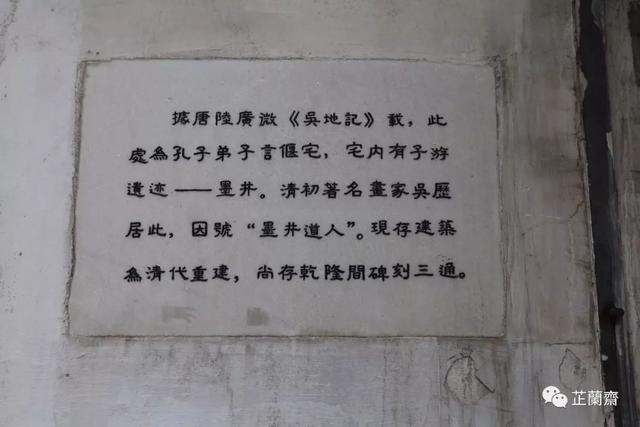 據唐陸廣微《吳地記》載，此
處為孔子弟子言偃宅，宅内有子游
遺迹——墨井。清初著名畫家吳歷
居此，因號“墨井道人”。現存建築
為清代重建，尚存乾隆間碑刻三通。
芷蘭齋